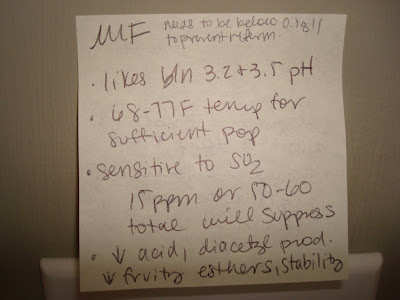 MLF needs to be below 0.1g/l
to prevent referm.
• likes b/n 3.2 + 3.5 pH
• 68-77F temp for
sufficient pop
• sensitive to SO2
15 ppm or 50-60
total will suppress
• ↓ acid, diacetyl prod.
↓ fruity esthers, stability